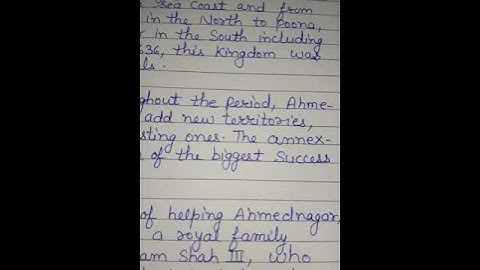 Sea Coast and from
in the North to Poona,
in the South including
636, this Kingdom was
ls.
ghout the period, Ahme-
add new territories,
sting ones. The annex-
of the biggest Success
of helping Ahmednagar,
a royal family
am Shah III, who